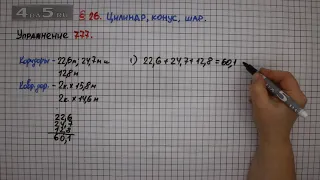 4на5.ru
§ 26. Цилиндр, конус, шар.
Упражнение 777.
Коридоры - 22,6м, 24,7м и
12,8м
Ковр. дор. - 2к. х 15,8м
2к. х 14,6м
22,6
24,7
12,8
60,1
1) 22,6 + 24,7 + 12,8 = 60,1